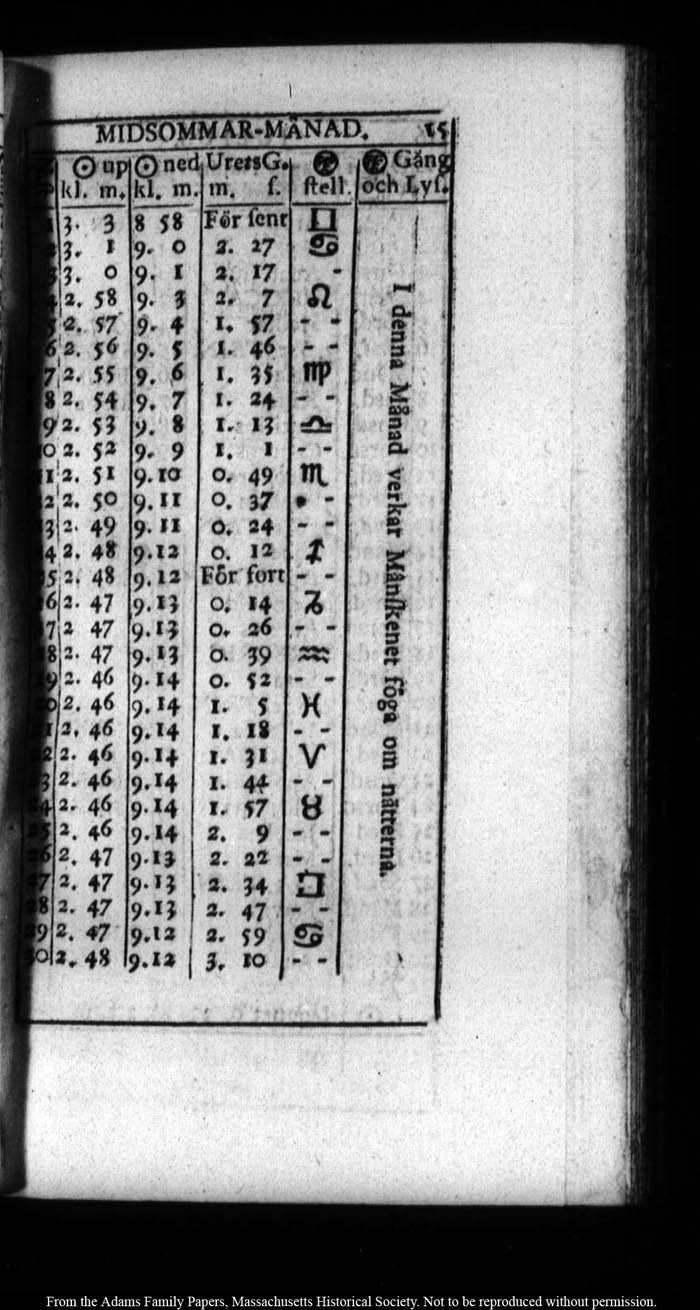 MIDSOMMAR-MÅNAD. 15
☉ up ☉ ned UretsG. Gång
kl. m. kl. m. m. ſ. ſtell. och Lyſ.
1 3. 3 8 58 För ſent ♊
2 3. 1 9. 0 2. 27 ♋
3 3. 0 9. 1 2. 17 -
4 2. 58 9. 3 2. 7 ♌
5 2. 57 9. 4 1. 57 - -
6 2. 56 9. 5 1. 46 - -
7 2. 55 9. 6 1. 35 ♍
8 2. 54 9. 7 1. 24 - -
9 2. 53 9. 8 1. 13 ♎
10 2. 52 9. 9 1. 1 - -
11 2. 51 9.10 0. 49 ♏
12 2. 50 9.11 0. 37 - -
13 2. 49 9.11 0. 24 - -
14 2. 48 9.12 0. 12 ♐
15 2. 48 9.12 För fort - -
16 2. 47 9.13 0. 14 ♑
17 2 47 9.13 0. 26 - -
18 2. 47 9.13 0. 39 ♒
19 2. 46 9.14 0. 52 - -
20 2. 46 9.14 1. 5 ♓
21 2. 46 9.14 1. 18 - -
22 2. 46 9.14 1. 31 ♈
23 2. 46 9.14 1. 44 - -
24 2. 46 9.14 1. 57 ♉
25 2. 46 9.14 2. 9 - -
26 2. 47 9.13 2. 22 - -
27 2. 47 9.13 2. 34 ♊
28 2. 47 9.13 2. 47 - -
29 2. 47 9.12 2. 59 ♋
30 2. 48 9.12 3. 10 - -
I denna Månad verkar Månſkenet föga om nätterna.
From the Adams Family Papers, Massachusetts Historical Society. Not to be reproduced without permission.